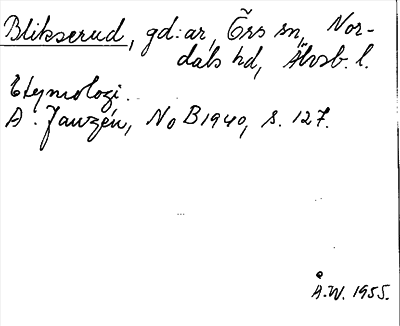 Blikserud, gd:ar, Örs sn, Nor-
dals hd, Älvsb. l.
Etymologi.
A. Janzén, NoB 1940, s. 127.
Å.W. 1955.